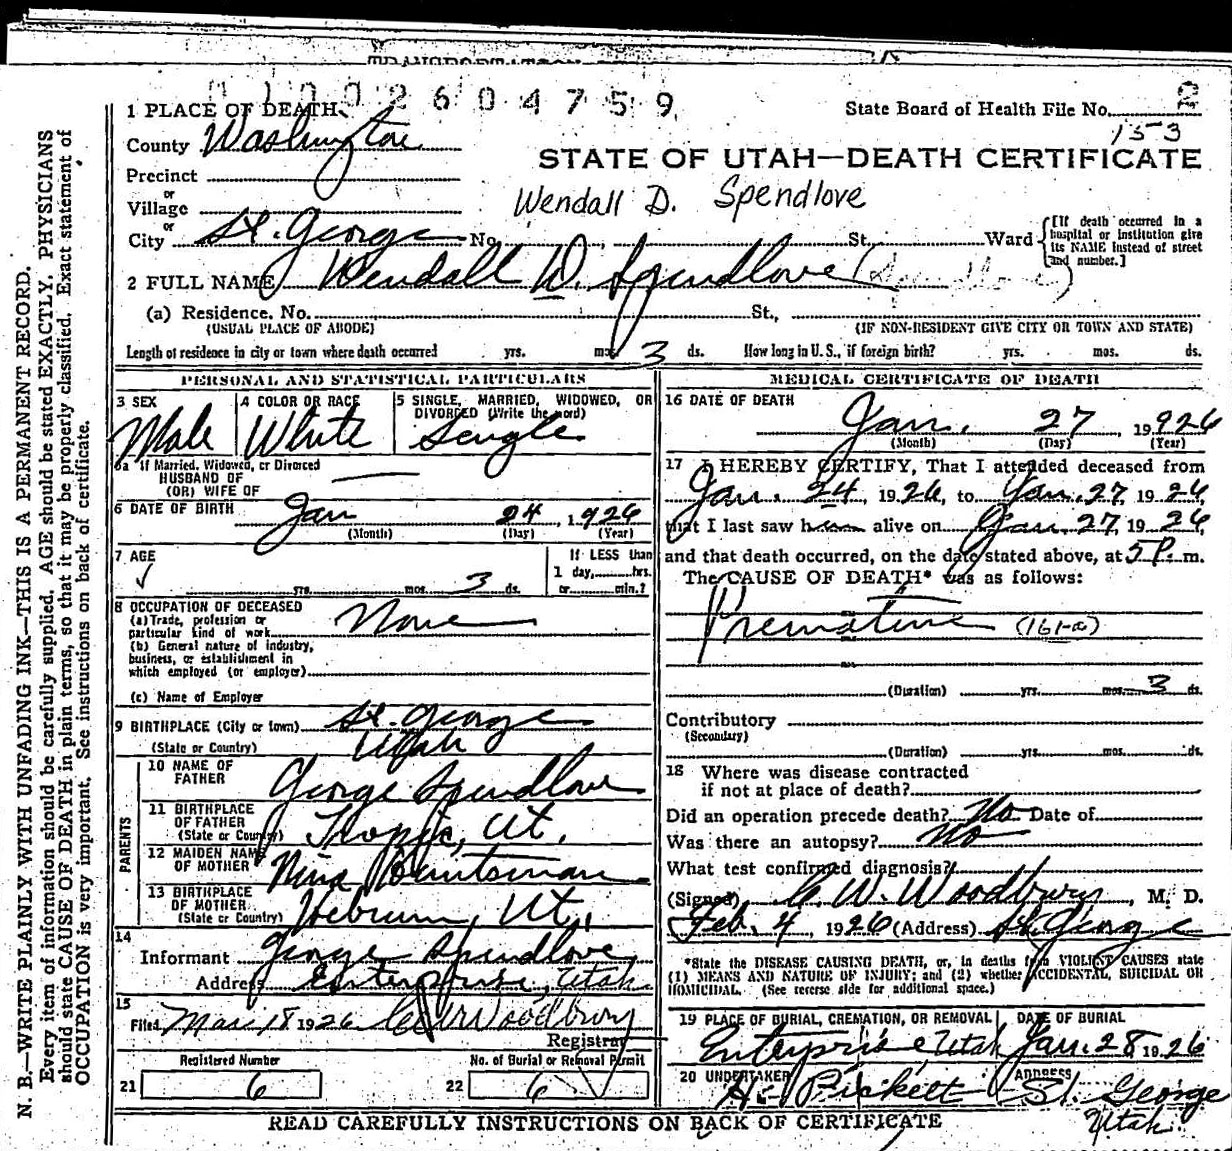 0 1 0 0 2 6 0 4 7 5 9
1 PLACE OF DEATH
State Board of Health File No.
153
County Washington
STATE OF UTAH—DEATH CERTIFICATE
Precinct
Wendall D. Spendlove
or
Village
or
City St. George No. St. Ward
[If death occurred in a hospital or institution give its NAME instead of street and number.]
2 FULL NAME Wendall D. Spendlove (Spendlove)
(a) Residence. No. St.,
(USUAL PLACE OF ABODE) (IF NON-RESIDENT GIVE CITY OR TOWN AND STATE)
Length of residence in city or town where death occurred yrs. mos. 3 ds. How long in U. S., if foreign birth? yrs. mos. ds.
PERSONAL AND STATISTICAL PARTICULARS
3 SEX
Male
4 COLOR OR RACE
White
5 SINGLE, MARRIED, WIDOWED, OR DIVORCED (Write the word)
Single
5a If Married, Widowed, or Divorced
HUSBAND OF
(OR) WIFE OF
6 DATE OF BIRTH Jan 24, 1926
(Month) (Day) (Year)
7 AGE
yrs. mos. 3 ds.
If LESS than
1 day, hrs.
or min.?
8 OCCUPATION OF DECEASED
(a) Trade, profession or
particular kind of work None
(b) General nature of industry,
business, or establishment in
which employed (or employer)
(c) Name of Employer
9 BIRTHPLACE (City or town) St. George
(State or Country) Utah
PARENTS
10 NAME OF FATHER George Spendlove
11 BIRTHPLACE OF FATHER
(State or Country) Tropic, Ut.
12 MAIDEN NAME OF MOTHER Nina Huntsman
13 BIRTHPLACE OF MOTHER
(State or Country) Hebrum, Ut.
14
Informant George Spendlove
Address Enterprise, Utah
15
Filed Mar 18 1926 C W Woodbury
Registrar
Registered Number
No. of Burial or Removal Permit
21 6
22 6
MEDICAL CERTIFICATE OF DEATH
16 DATE OF DEATH
Jan. 27, 1926
(Month) (Day) (Year)
17 I HEREBY CERTIFY, That I attended deceased from
Jan. 24, 1926, to Jan. 27, 1926,
that I last saw him alive on Jan. 27, 1926
and that death occurred, on the date stated above, at 5 P. m.
The CAUSE OF DEATH* was as follows:
Premature (161-a)
(Duration) yrs. mos. 3 ds.
Contributory
(Secondary)
(Duration) yrs. mos. ds.
18 Where was disease contracted
if not at place of death?
Did an operation precede death? No Date of
Was there an autopsy? No
What test confirmed diagnosis?
(Signed) C. W. Woodbury, M. D.
Feb. 4 1926 (Address) St. George
*State the DISEASE CAUSING DEATH, or, in deaths from VIOLENT CAUSES state
(1) MEANS AND NATURE OF INJURY; and (2) whether ACCIDENTAL, SUICIDAL OR
HOMICIDAL. (See reverse side for additional space.)
19 PLACE OF BURIAL, CREMATION, OR REMOVAL DATE OF BURIAL
Enterprise Utah Jan. 28 1926
20 UNDERTAKER ADDRESS
H. Pickett St. George
Utah
READ CAREFULLY INSTRUCTIONS ON BACK OF CERTIFICATE
N. B.—WRITE PLAINLY WITH UNFADING INK—THIS IS A PERMANENT RECORD.
Every item of information should be carefully supplied. AGE should be stated EXACTLY. PHYSICIANS
should state CAUSE OF DEATH in plain terms, so that it may be properly classified. Exact statement of
OCCUPATION is very important. See instructions on back of certificate.